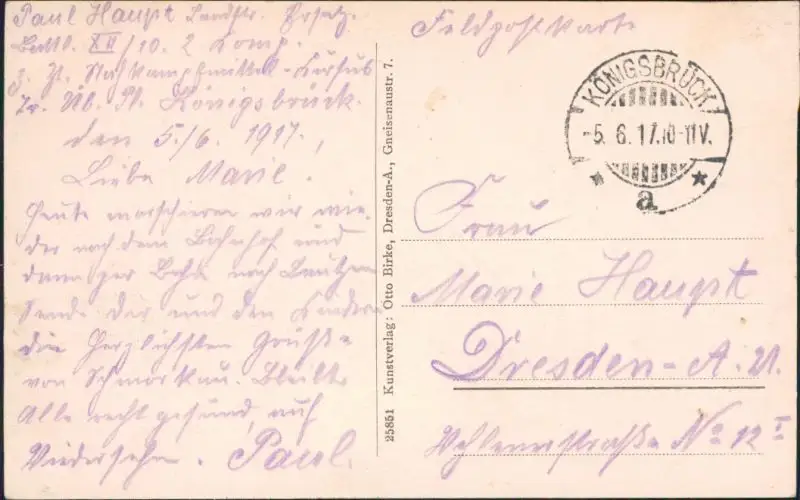 Paul Haupt Landstr. Ersatz.
Battl. XII/10. 2 Komp.
z. Zt. Nahkampfmittel-Kursus
Tr. Üb. Pl. Königsbrück.
den 5./6. 1917.,
Liebe Marie.
Heute marschieren wir wie-
der nach dem Bahnhof und
dann per Bahn nach Bautzen
Sende Dir und den Kindern
die Herzlichsten Grüße
von Schmorkau. Bleibt
Alle recht gesund, auf
Wiedersehn. Paul.
25851 Kunstverlag: Otto Birke, Dresden-A., Gneisenaustr. 7.
Feldpostkarte
KÖNIGSBRÜCK
-5.6.17.10-11V.
* a *
Frau
Marie Haupt
Dresden-A.
Wehlenerstraße No 12 I